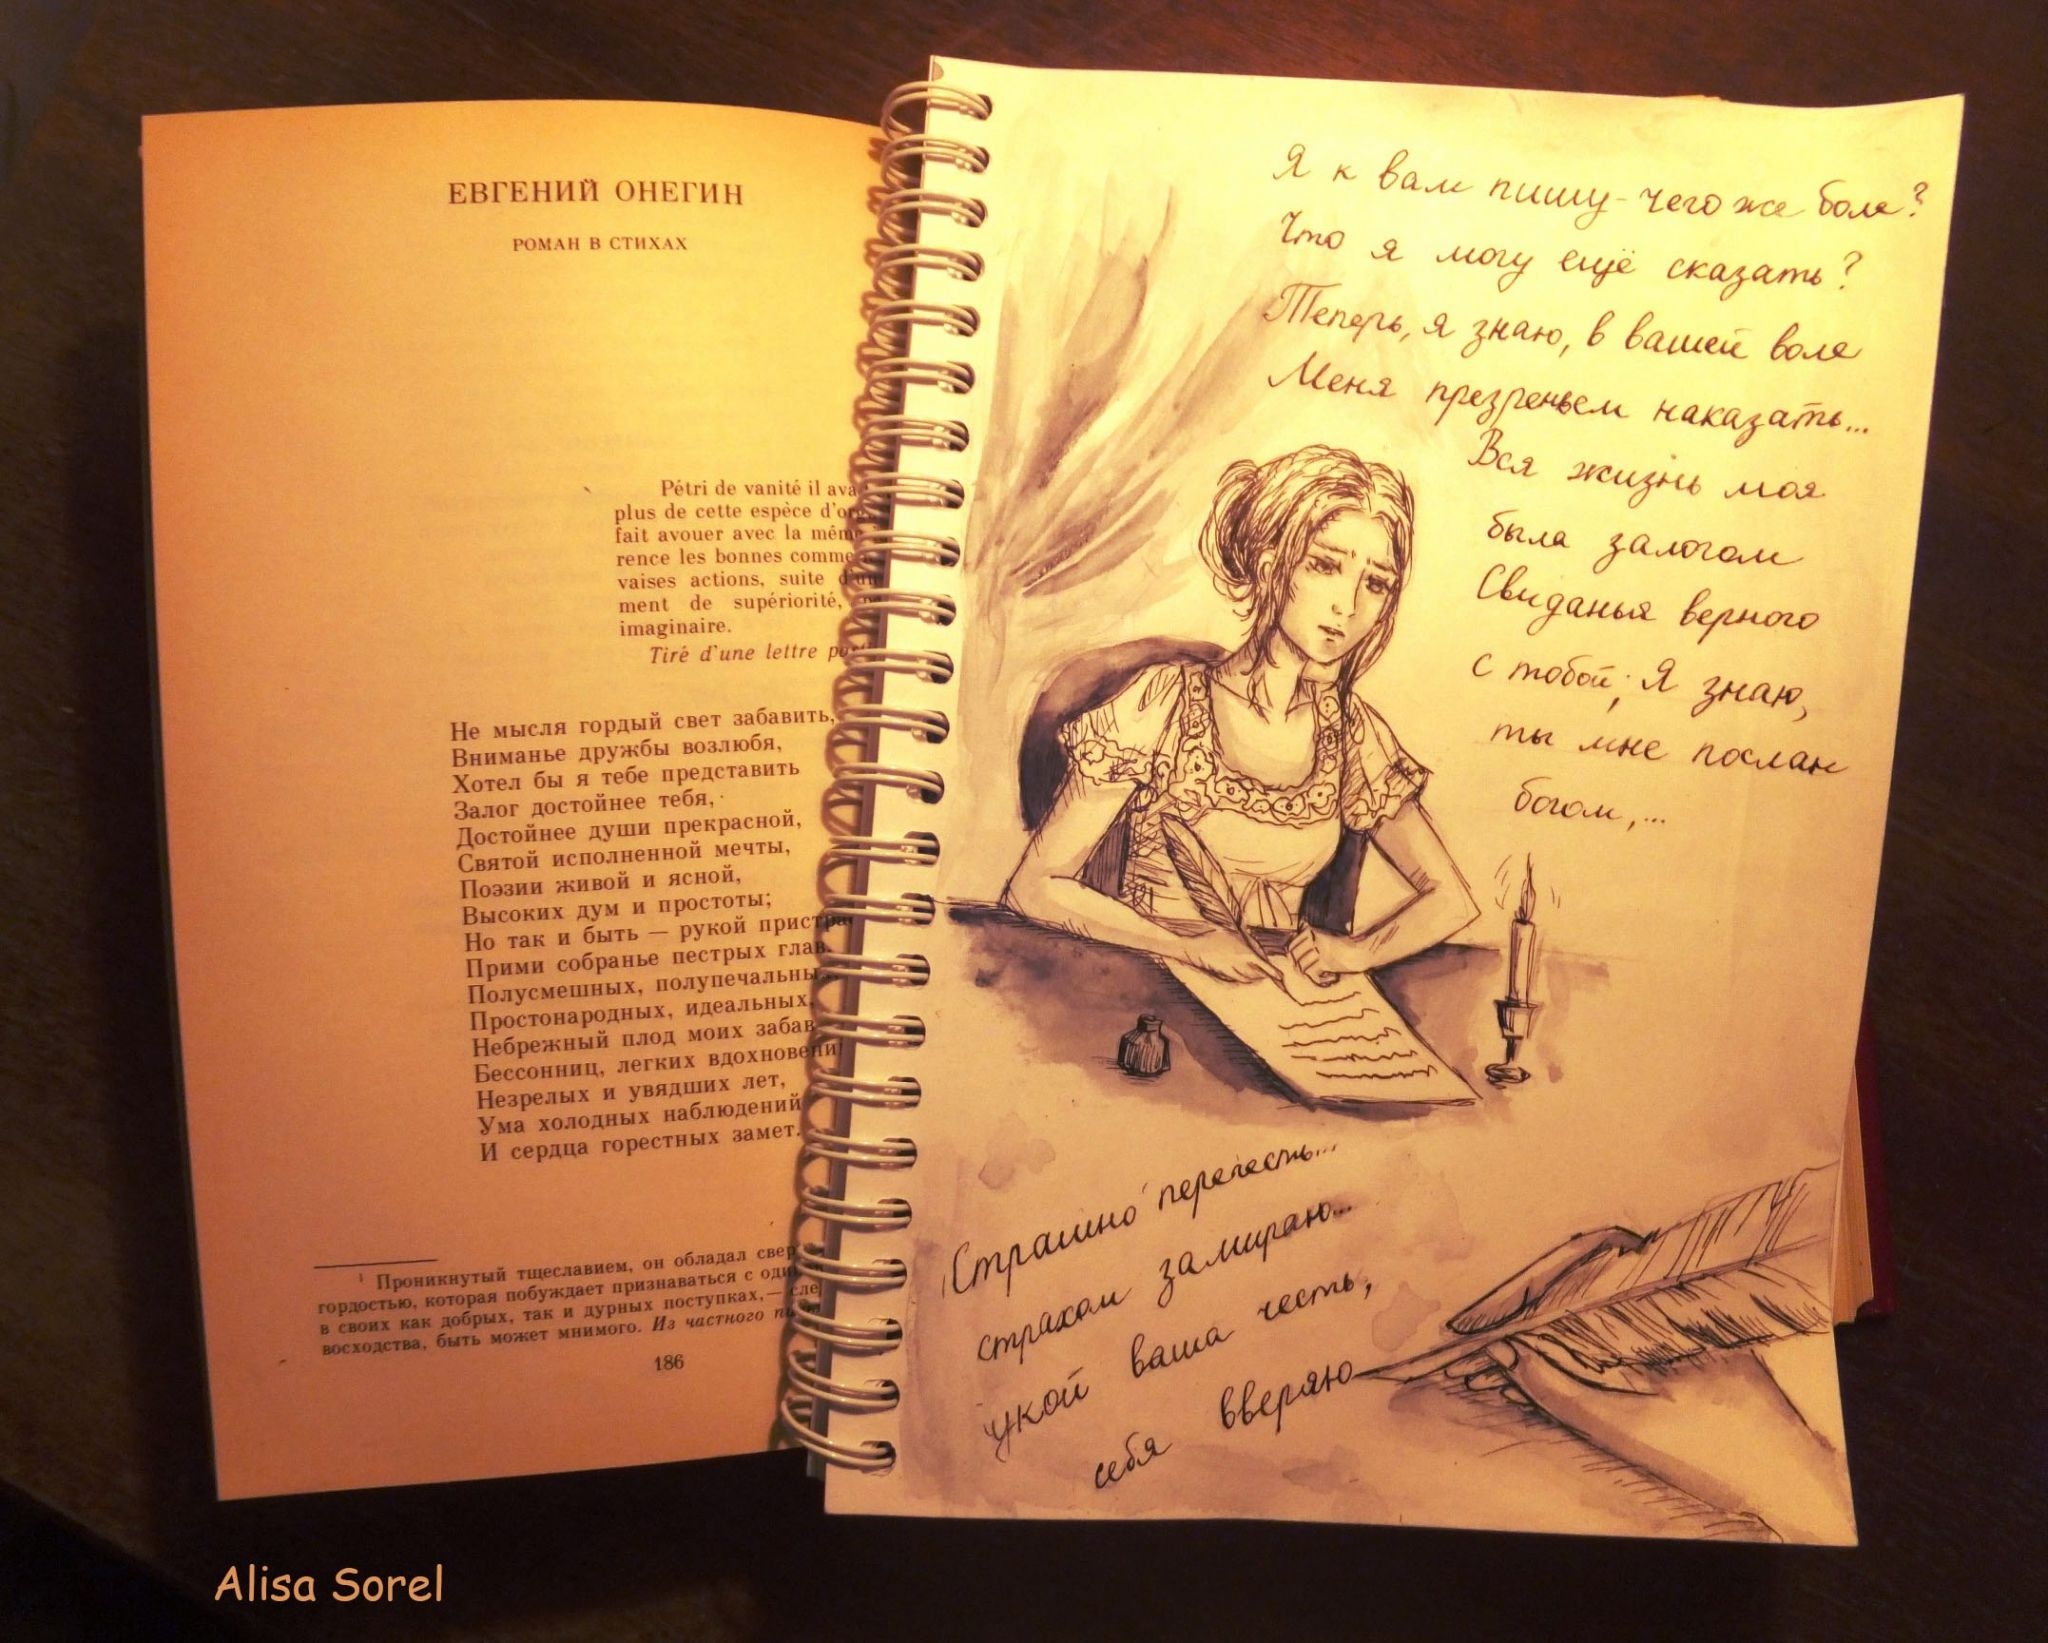 ЕВГЕНИЙ ОНЕГИН
РОМАН В СТИХАХ
Pétri de vanité il ava
plus de cette espèce d'org
fait avouer avec la mêm
rence les bonnes comme
vaises actions, suite d'un
ment de supériorité,
imaginaire.
Tiré d'une lettre par
Не мысля гордый свет забавить,
Вниманье дружбы возлюбя,
Хотел бы я тебе представить
Залог достойнее тебя,
Достойнее души прекрасной,
Святой исполненной мечты,
Поэзии живой и ясной,
Высоких дум и простоты;
Но так и быть — рукой пристра
Прими собранье пестрых глав,
Полусмешных, полупечальны
Простонародных, идеальных,
Небрежный плод моих забав
Бессонниц, легких вдохновени
Незрелых и увядших лет,
Ума холодных наблюдений
И сердца горестных замет.
¹ Проникнутый тщеславием, он обладал свер
гордостью, которая побуждает признаваться с оди
в своих как добрых, так и дурных поступках,— сле
восходства, быть может мнимого. Из частного пи
186
Я к вам пишу - чего же боле?
Что я могу ещё сказать?
Теперь, я знаю, в вашей воле
Меня презреньем наказать...
Вся жизнь моя
была залогом
Свиданья верного
с тобой; Я знаю,
ты мне послан
богом,...
Страшно перечесть...
страхом замираю...
укой ваша честь,
себя вверяю
Alisa Sorel